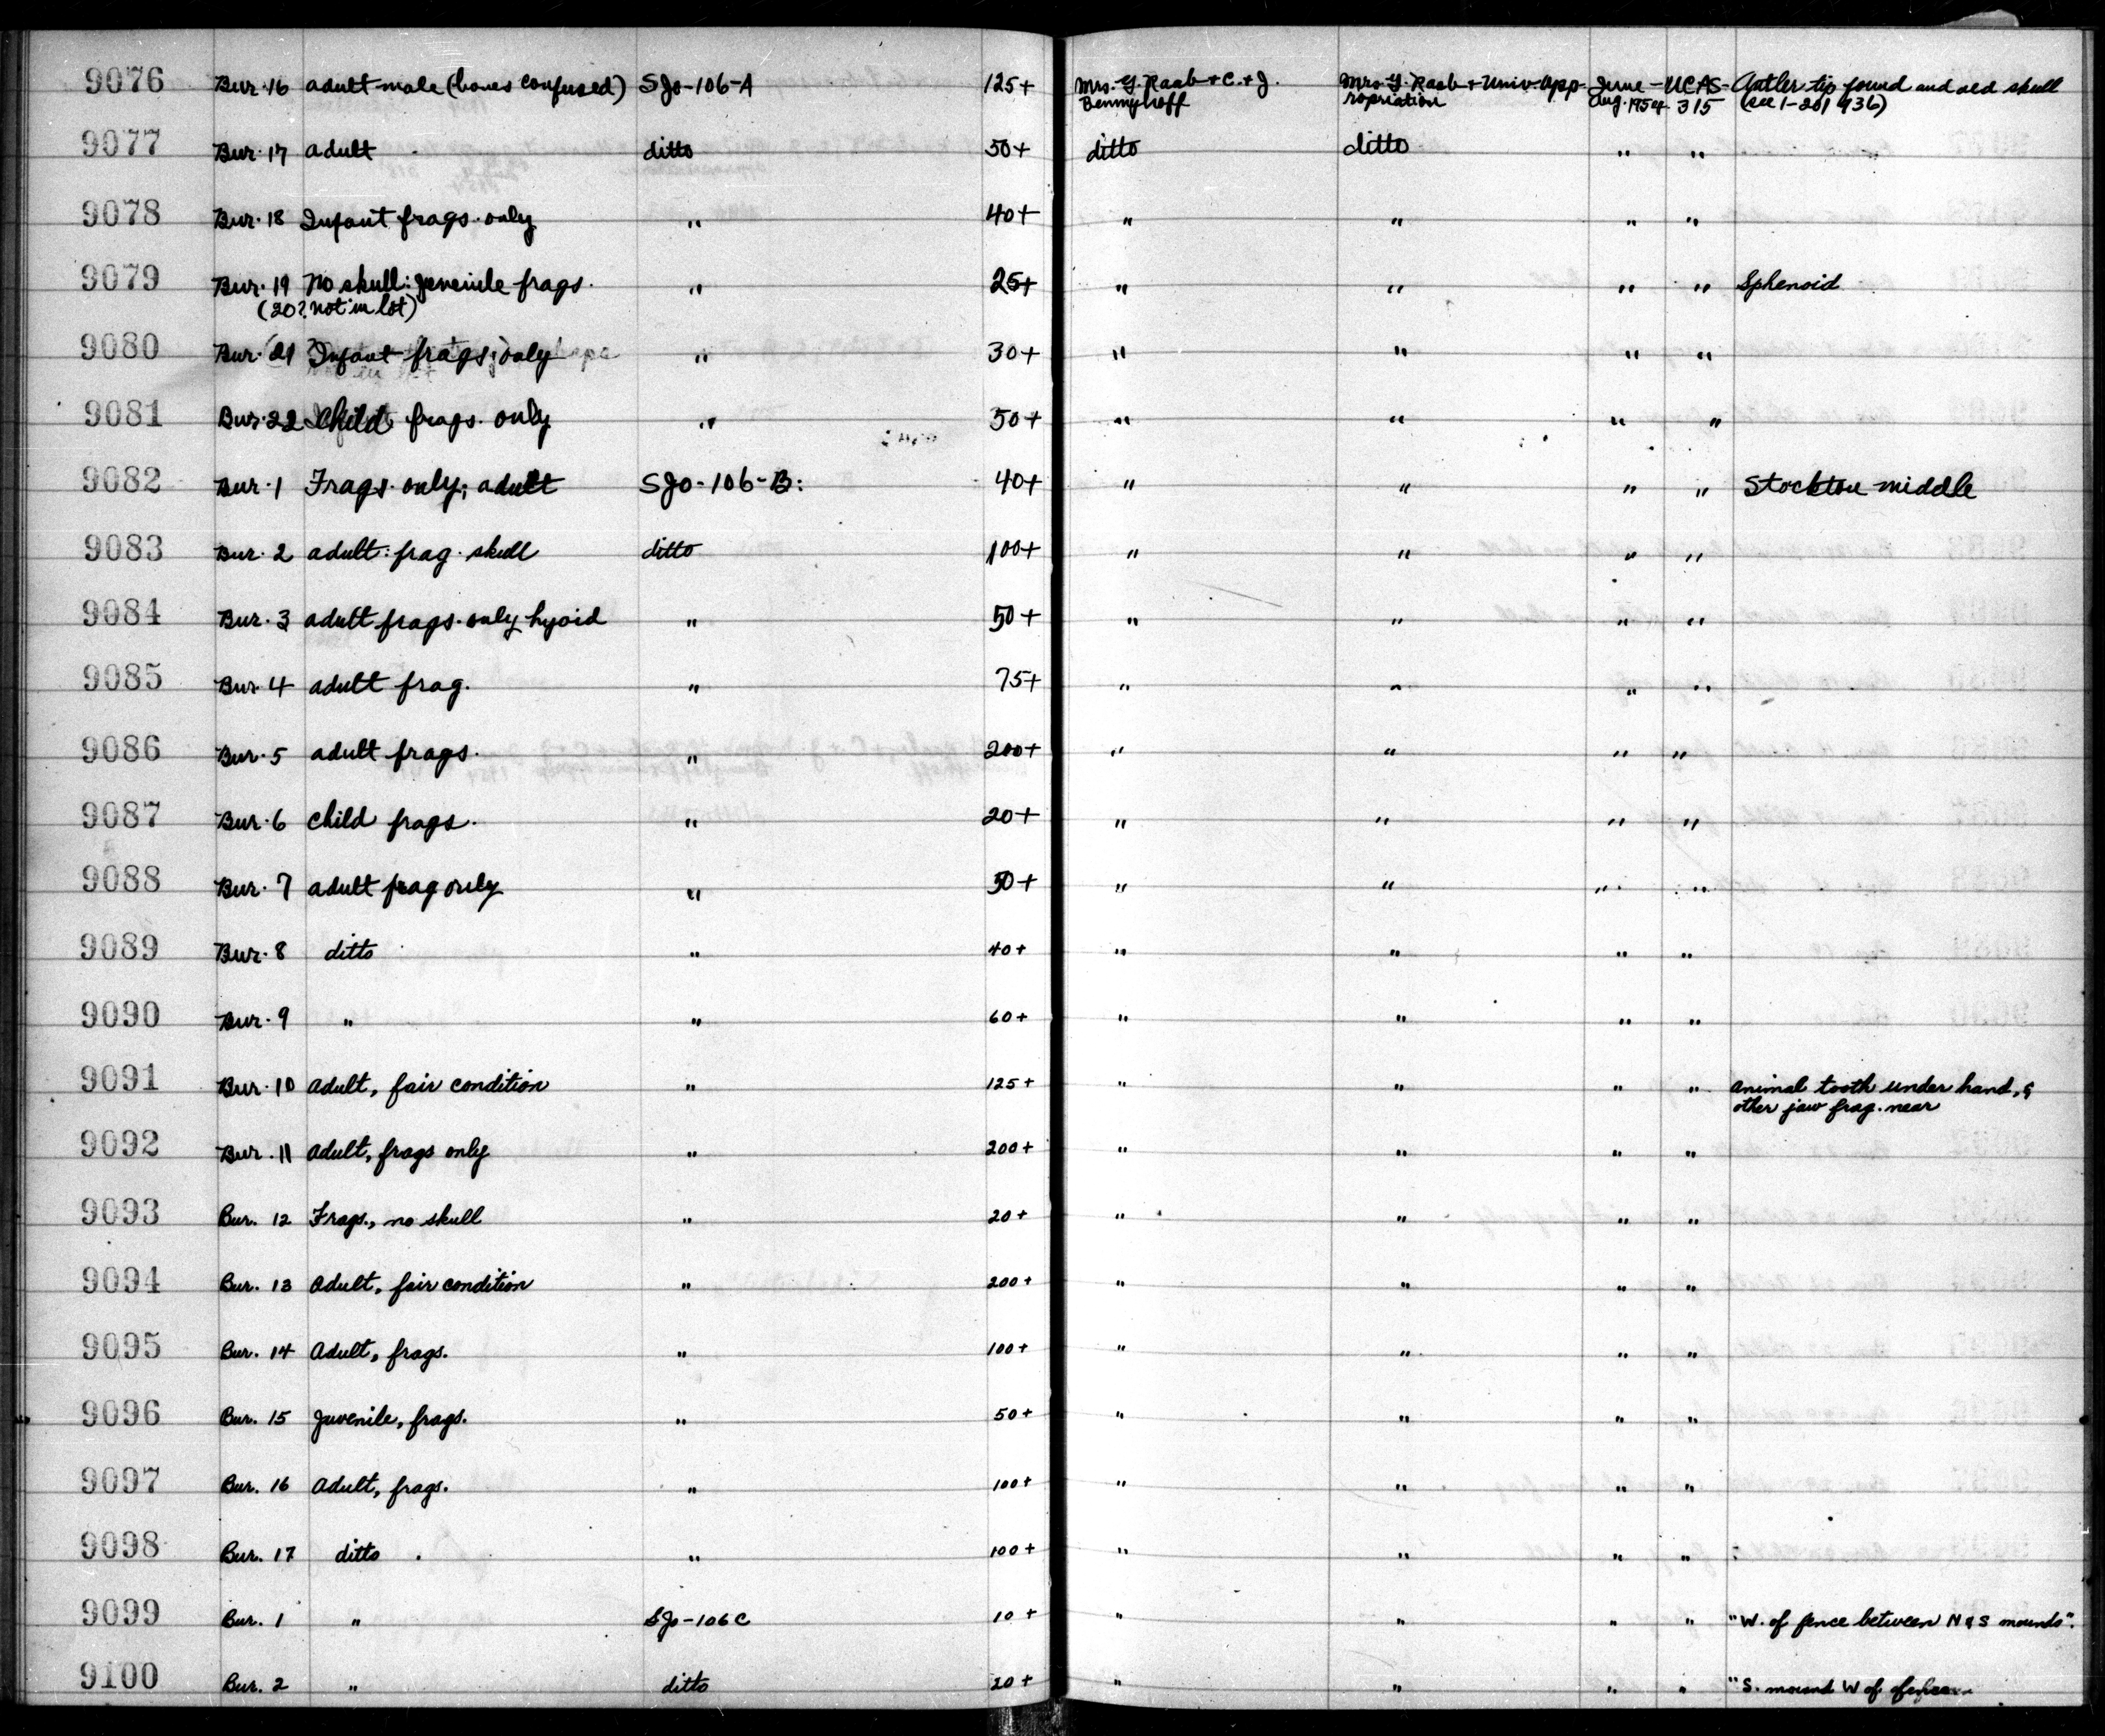 9076 Bur. 16 adult male (bones confused) SJo-106-A 125+ Mrs. Y. Raab + C. + J. Mrs. Y. Raab + Univ. App- June- UCAS- Antler tip found and old skull
Bennyhoff ropriation Aug. 1954 315 (see 1-201936)
9077 Bur. 17 adult ditto 50+ ditto ditto " "
9078 Bur. 18 Infant frags. only " 40+ " " " "
9079 Bur. 19 No skull: juvenile frags. " 25+ " " " " Sphenoid
(20? not in lot)
9080 Bur. 21 Infant frags; only " 30+ " " " "
9081 Bur. 22 Child frags. only " 50+ " " " "
9082 Bur. 1 Frags. only; adult SJo-106-B: 40+ " " " " Stockton middle
9083 Bur. 2 adult: frag. skull ditto 100+ " " " "
9084 Bur. 3 adult frags. only hyoid " 50+ " " " "
9085 Bur. 4 adult frag. " 75+ " " " "
9086 Bur. 5 adult frags. " 200+ " " " "
9087 Bur. 6 child frags. " 20+ " " " "
9088 Bur. 7 adult frag only " 50+ " " " "
9089 Bur. 8 ditto " 40+ " " " "
9090 Bur. 9 " " 60+ " " " "
9091 Bur. 10 Adult, fair condition " 125+ " " " " animal tooth under hand, &
other jaw frag. near
9092 Bur. 11 Adult, frags only " 200+ " " " "
9093 Bur. 12 Frags., no skull " 20+ " " " "
9094 Bur. 13 Adult, fair condition " 200+ " " " "
9095 Bur. 14 Adult, frags. " 100+ " " " "
9096 Bur. 15 Juvenile, frags. " 50+ " " " "
9097 Bur. 16 Adult, frags. " 100+ " " " "
9098 Bur. 17 ditto " 100+ " " " "
9099 Bur. 1 " SJo-106C 10+ " " " " "W. of fence between N & S mounds".
9100 Bur. 2 " ditto 20+ " " " " "S. mound W of